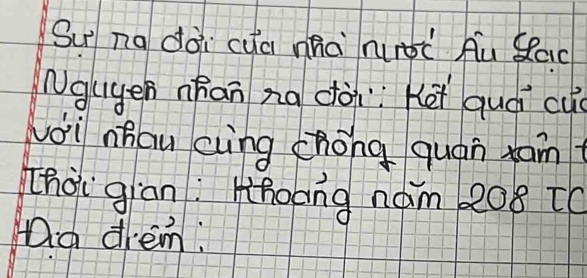 Sự ra đời của nhà nước Âu Lạc
Nguyên nhân ra đời: Kết quả củ
với nhau cùng chống quân xâm t
Thời gian: Khoảng năm 208 TC
Địa điểm: